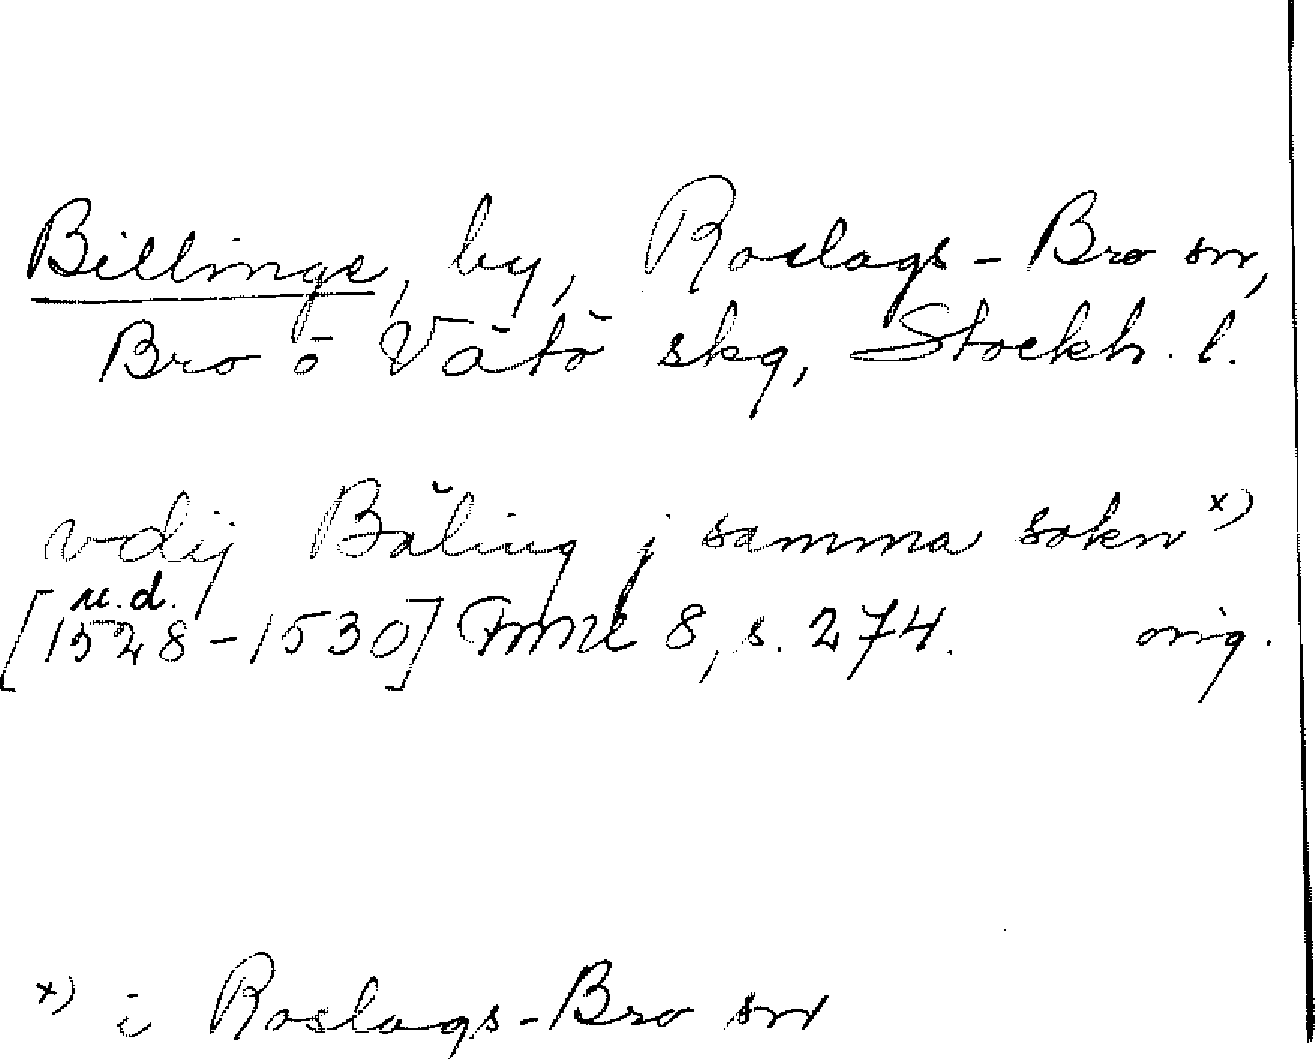 Billinge, by, Roslags-Bro sn,
Bro o Vätö skg, Stockh. l.
vdij Bäling j samma sokn x)
u.d.
[1528-1530] FMU 8, s. 274. orig.
x) i Roslags-Bro sn